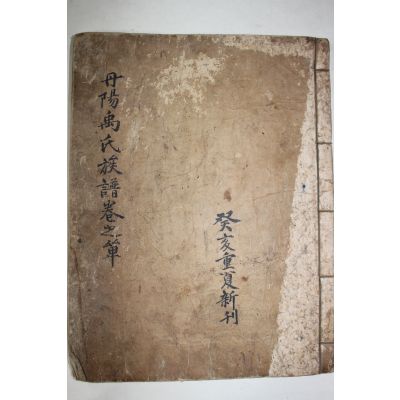 丹陽禹氏族譜卷之單
癸亥重夏新刊